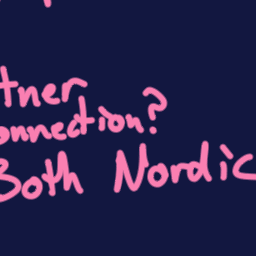 tner
onnection?
Both Nordic